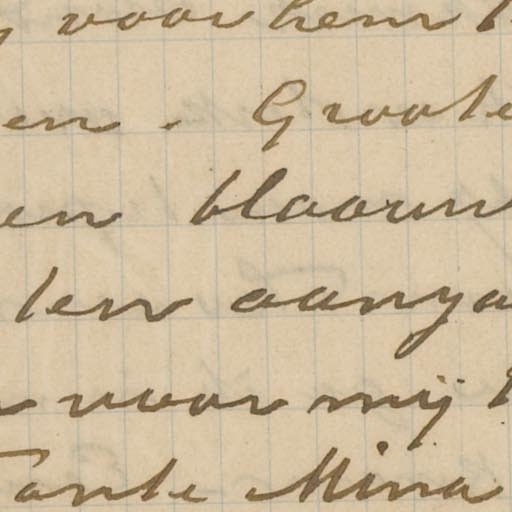 voor hem
en. Groote
en blaauw
ten aanga
voor mij
Tante Mina